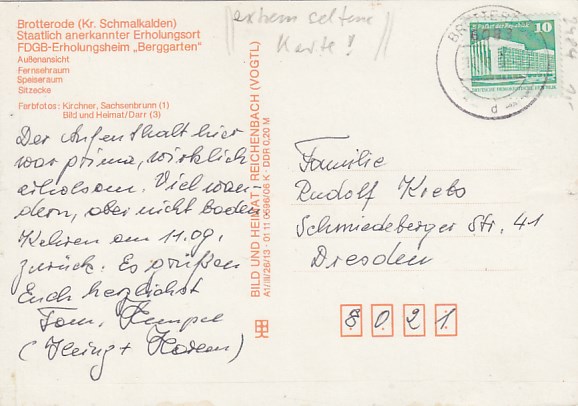 Brotterode (Kr. Schmalkalden)
Staatlich anerkannter Erholungsort
FDGB-Erholungsheim „Berggarten"
Außenansicht
Fernsehraum
Speiseraum
Sitzecke
Farbfotos: Kirchner, Sachsenbrunn (1)
Bild und Heimat/Darr (3)
extrem seltene
Karte!
10
Palast der Republik
Der Aufenthalt hier
war prima, wirklich
erholsam. Viel wan-
dern, aber nicht baden
Kehren am 11.09.
zurück. Es grüßen
Euch herzlichst
Fam.
BILD UND HEIMAT · REICHENBACH (VOGTL)
A1/III/26/13 · 01 11 0696/06 K · DDR 0,20 M
Familie
Rudolf Krebs
Schmiedeberger Str. 41
Dresden
8021